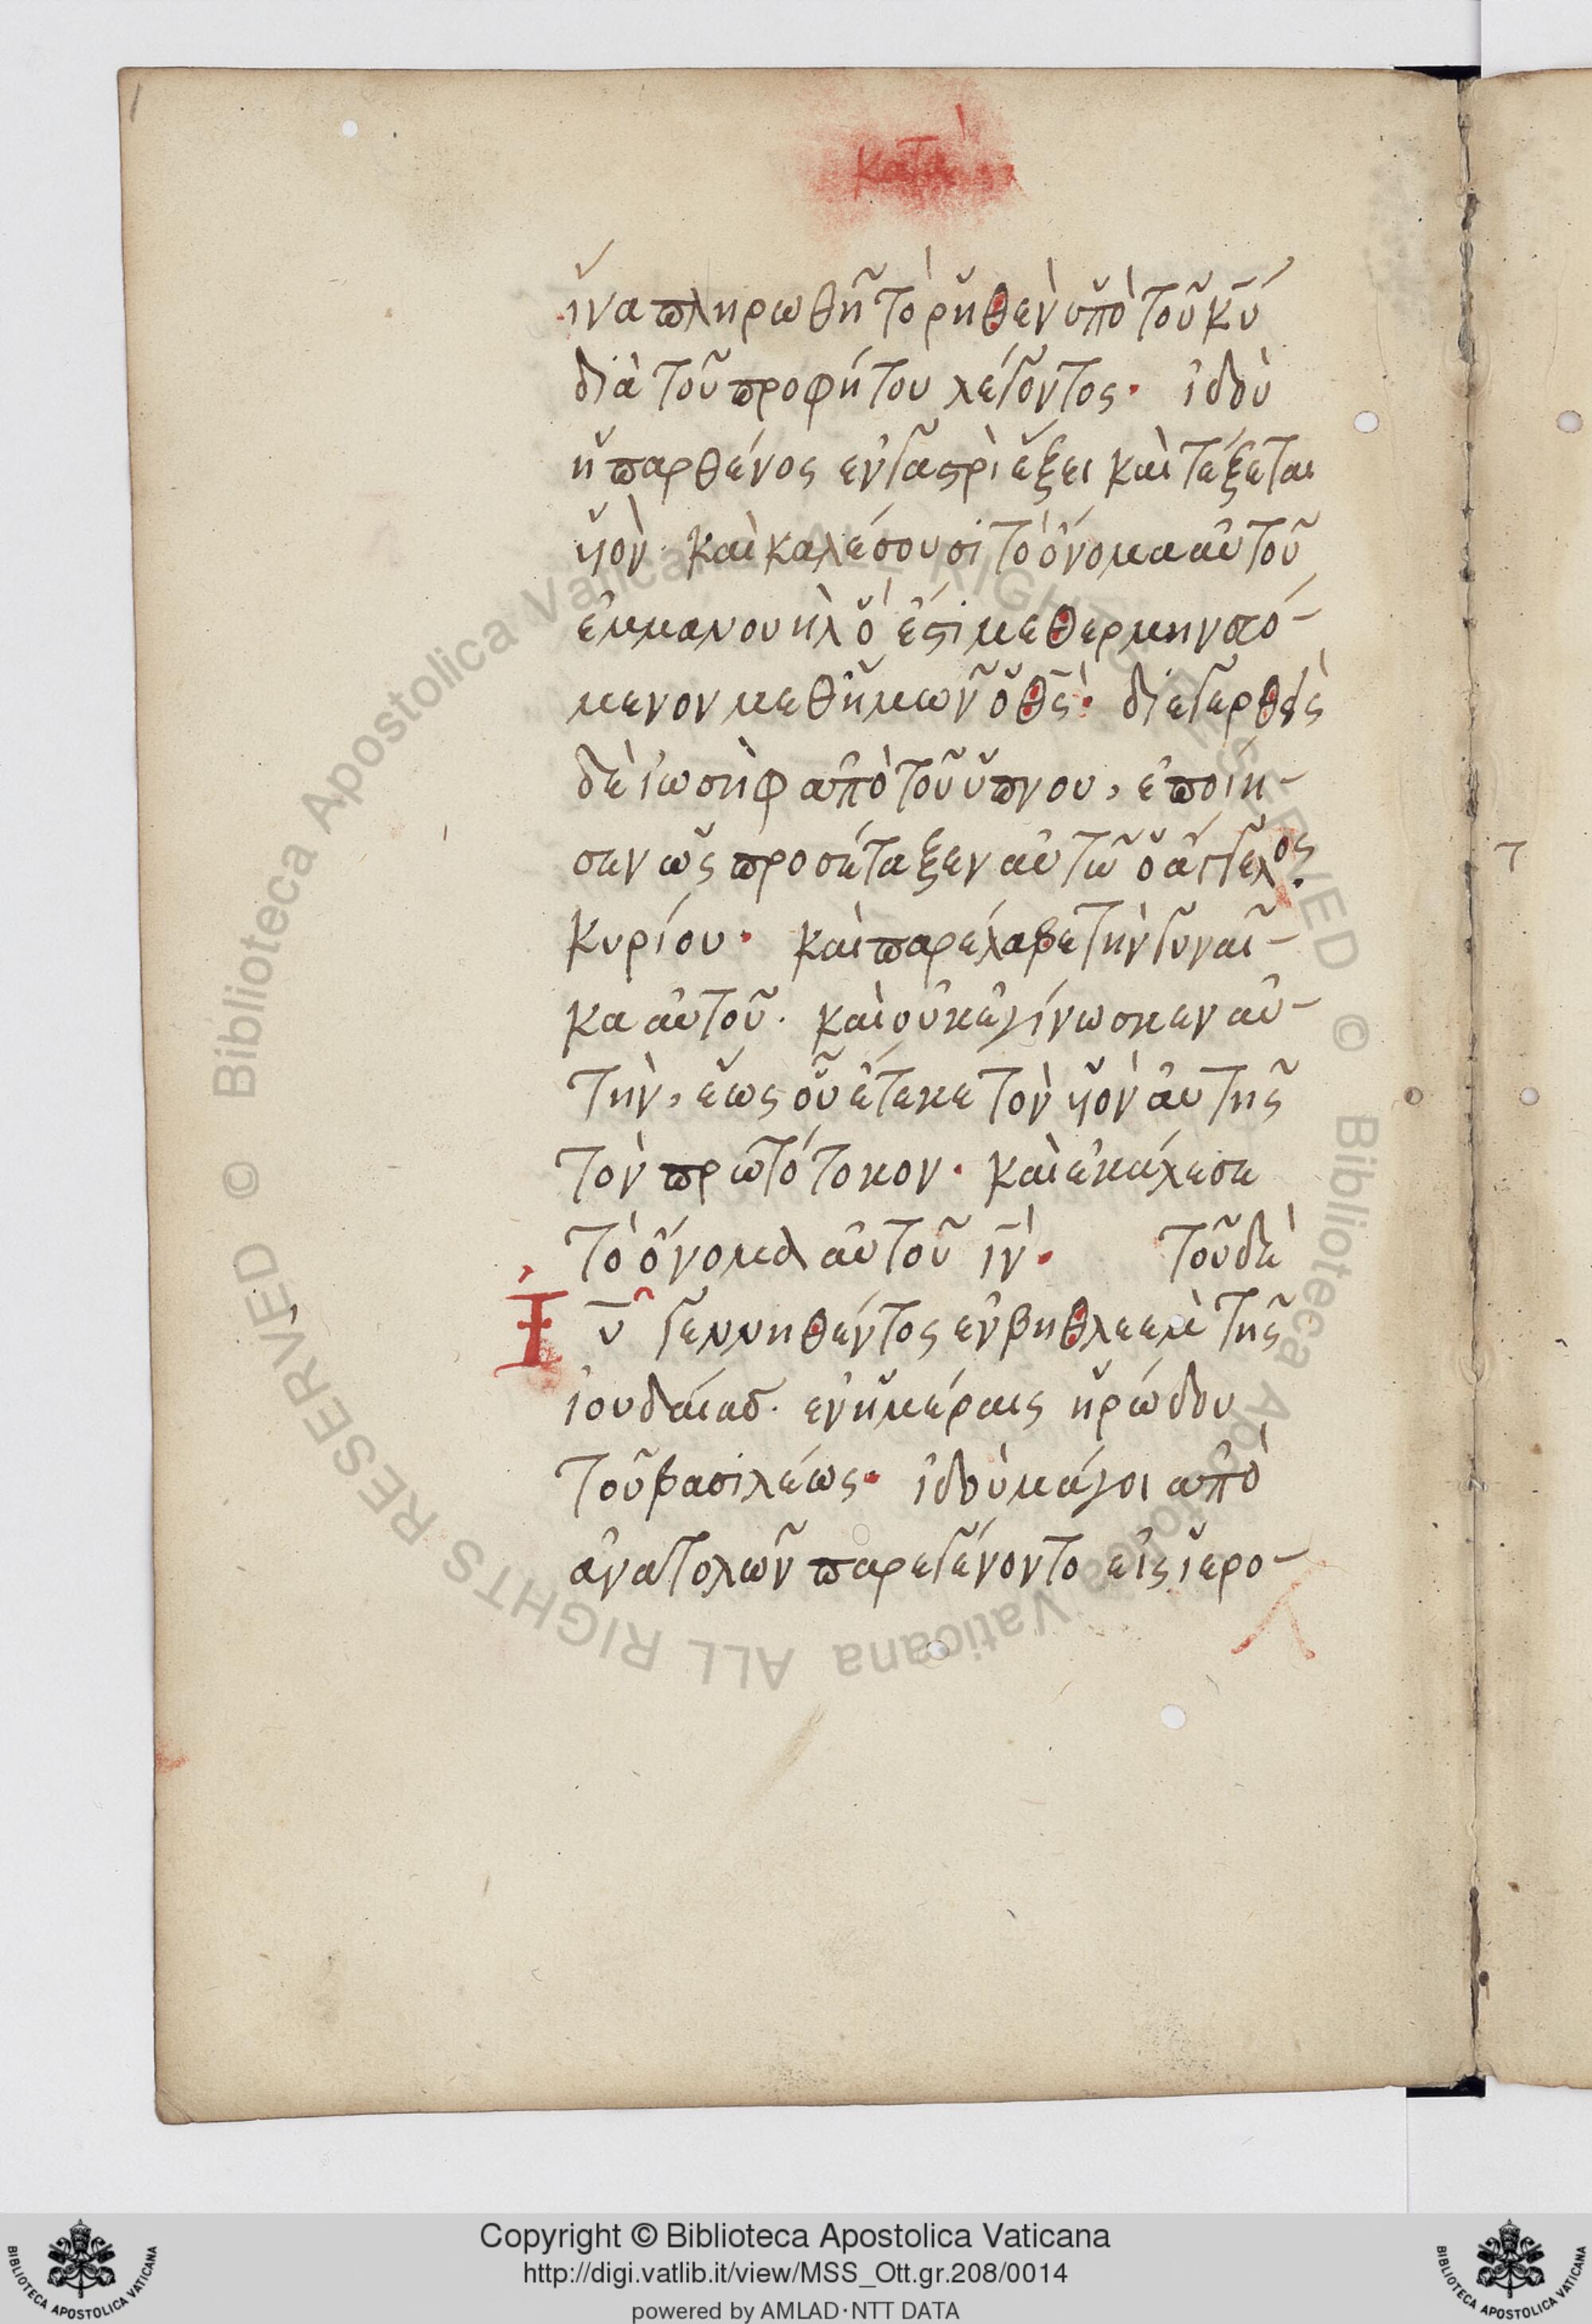 κατὰ
ἵνα πληρωθῆ τὸ ῥηθὲν ὑπὸ τοῦ κ̅υ̅
διὰ τοῦ προφήτου λέγοντος· ἰδοὺ
ἡ παρθένος ἐν γαστρὶ ἕξει καὶ τέξεται
υἱὸν· καὶ καλέσουσι τὸ ὄνομα αὐτοῦ
ἐμμανουὴλ ὅ ἐστι μεθερμηνευό-
μενον μεθ' ἡμῶν ὁ θ̅ς̅· διεγερθεὶς
δὲ ἰωσὴφ ἀπὸ τοῦ ὕπνου, ἐποίη-
σεν ὡς προσέταξεν αὐτῶ ὁ ἄγγελος
κυρίου· καὶ παρέλαβε τὴν γυναῖ-
κα αὐτοῦ· καὶ οὐκ ἐγίνωσκεν αὐ-
τὴν, ἕως οὗ ἔτεκε τὸν υἱὸν αὐτῆς
τὸν πρωτότοκον· καὶ ἐκάλεσε
τὸ ὄνομα αὐτοῦ ι̅ν̅· τοῦ δὲ
Ἰ̅υ̅ γεννηθέντος ἐν βηθλεὲμ τῆς
ἰουδαίας· ἐν ἡμέραις ἡρώδου
τοῦ βασιλέως· ἰδοὺ μάγοι ἀπὸ
ἀνατολῶν παρεγένοντο εἰς ἱερο-
© Biblioteca Apostolica Vaticana ALL RIGHTS RESERVED © Biblioteca Apostolica Vaticana ALL RIGHTS RESERVED
Copyright © Biblioteca Apostolica Vaticana
http://digi.vatlib.it/view/MSS_Ott.gr.208/0014
powered by AMLAD·NTT DATA
BIBLIOTECA APOSTOLICA VATICANA
BIBLIOTECA APOSTOLICA VATICANA